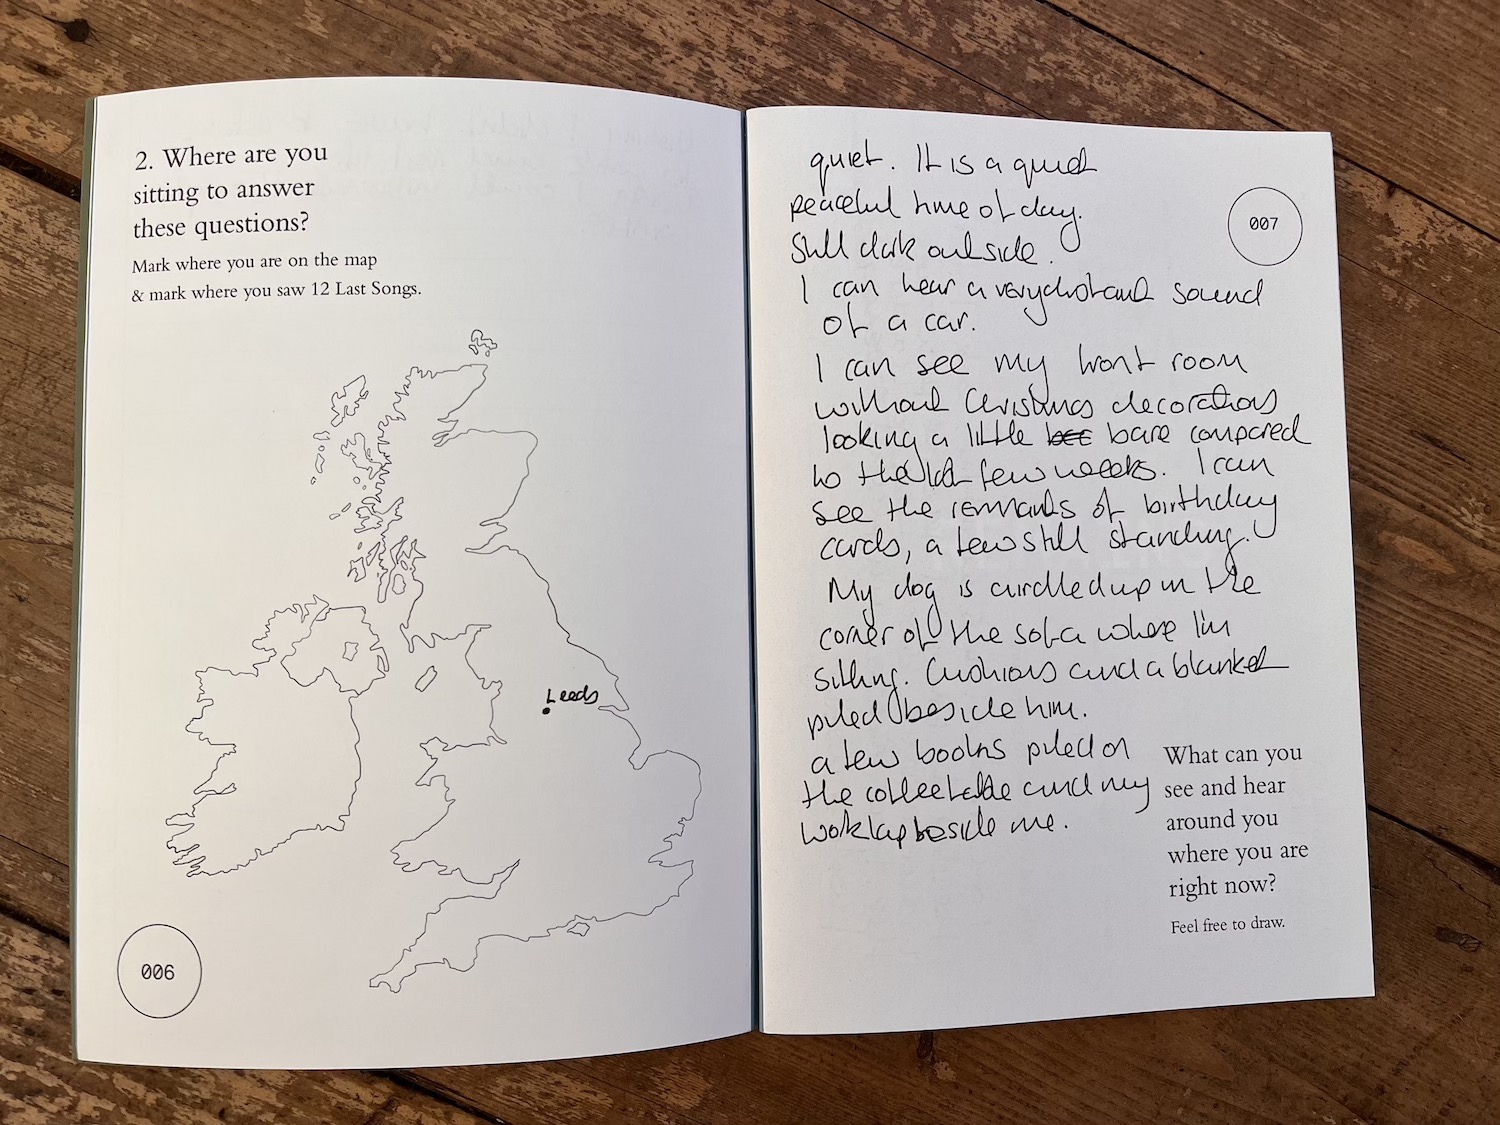 2. Where are you
sitting to answer
these questions?
Mark where you are on the map
& mark where you saw 12 Last Songs.
Leeds
006
quiet. It is a quiet
peaceful time of day.
Still dark outside.
I can hear a very distant sound
of a car.
I can see my front room
without Christmas decorations
looking a little bare compared
to the last few weeks. I can
see the remnants of birthday
cards, a few still standing.
My dog is curdled up in the
corner of the sofa where I'm
sitting. Cushions and a blanket
piled beside him.
a few books piled on
the coffee table and my
work lap beside me.
007
What can you
see and hear
around you
where you are
right now?
Feel free to draw.